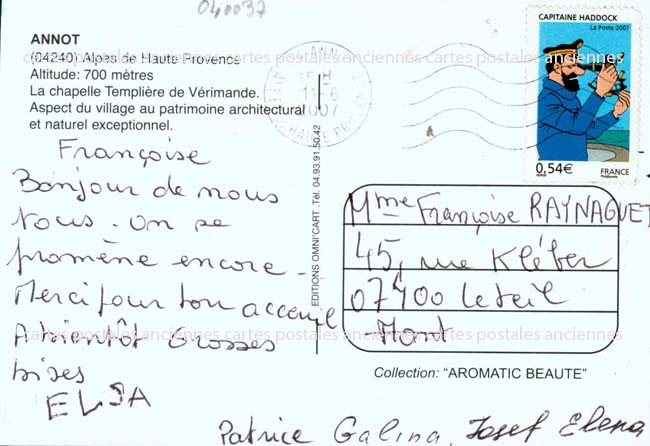 040037
ANNOT
(04240) Alpes de Haute Provence
Altitude: 700 mètres
La chapelle Templière de Vérimande.
Aspect du village au patrimoine architectural
et naturel exceptionnel.
Françoise
Bonjour de nous
tous. On se
promène encore -
Merci pour ton accueil
A bientôt Grosses
bises
ELSA
Patrice Galina, Josef Elena
EDITIONS OMNI'CART. Tél. 04.93.91.50.42
ANNOT
11-6
2007
CAPITAINE HADDOCK
La Poste 2007
0,54€
FRANCE
Mme Françoise RAYNAGUET
45, rue Kléber
07400 Le teil
-Mont
Collection: "AROMATIC BEAUTE"
cartes postales anciennes cartes postales anciennes cartes postales anciennes
cartes postales anciennes cartes postales anciennes cartes postales anciennes